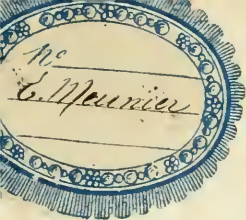 N°
E. Meunier